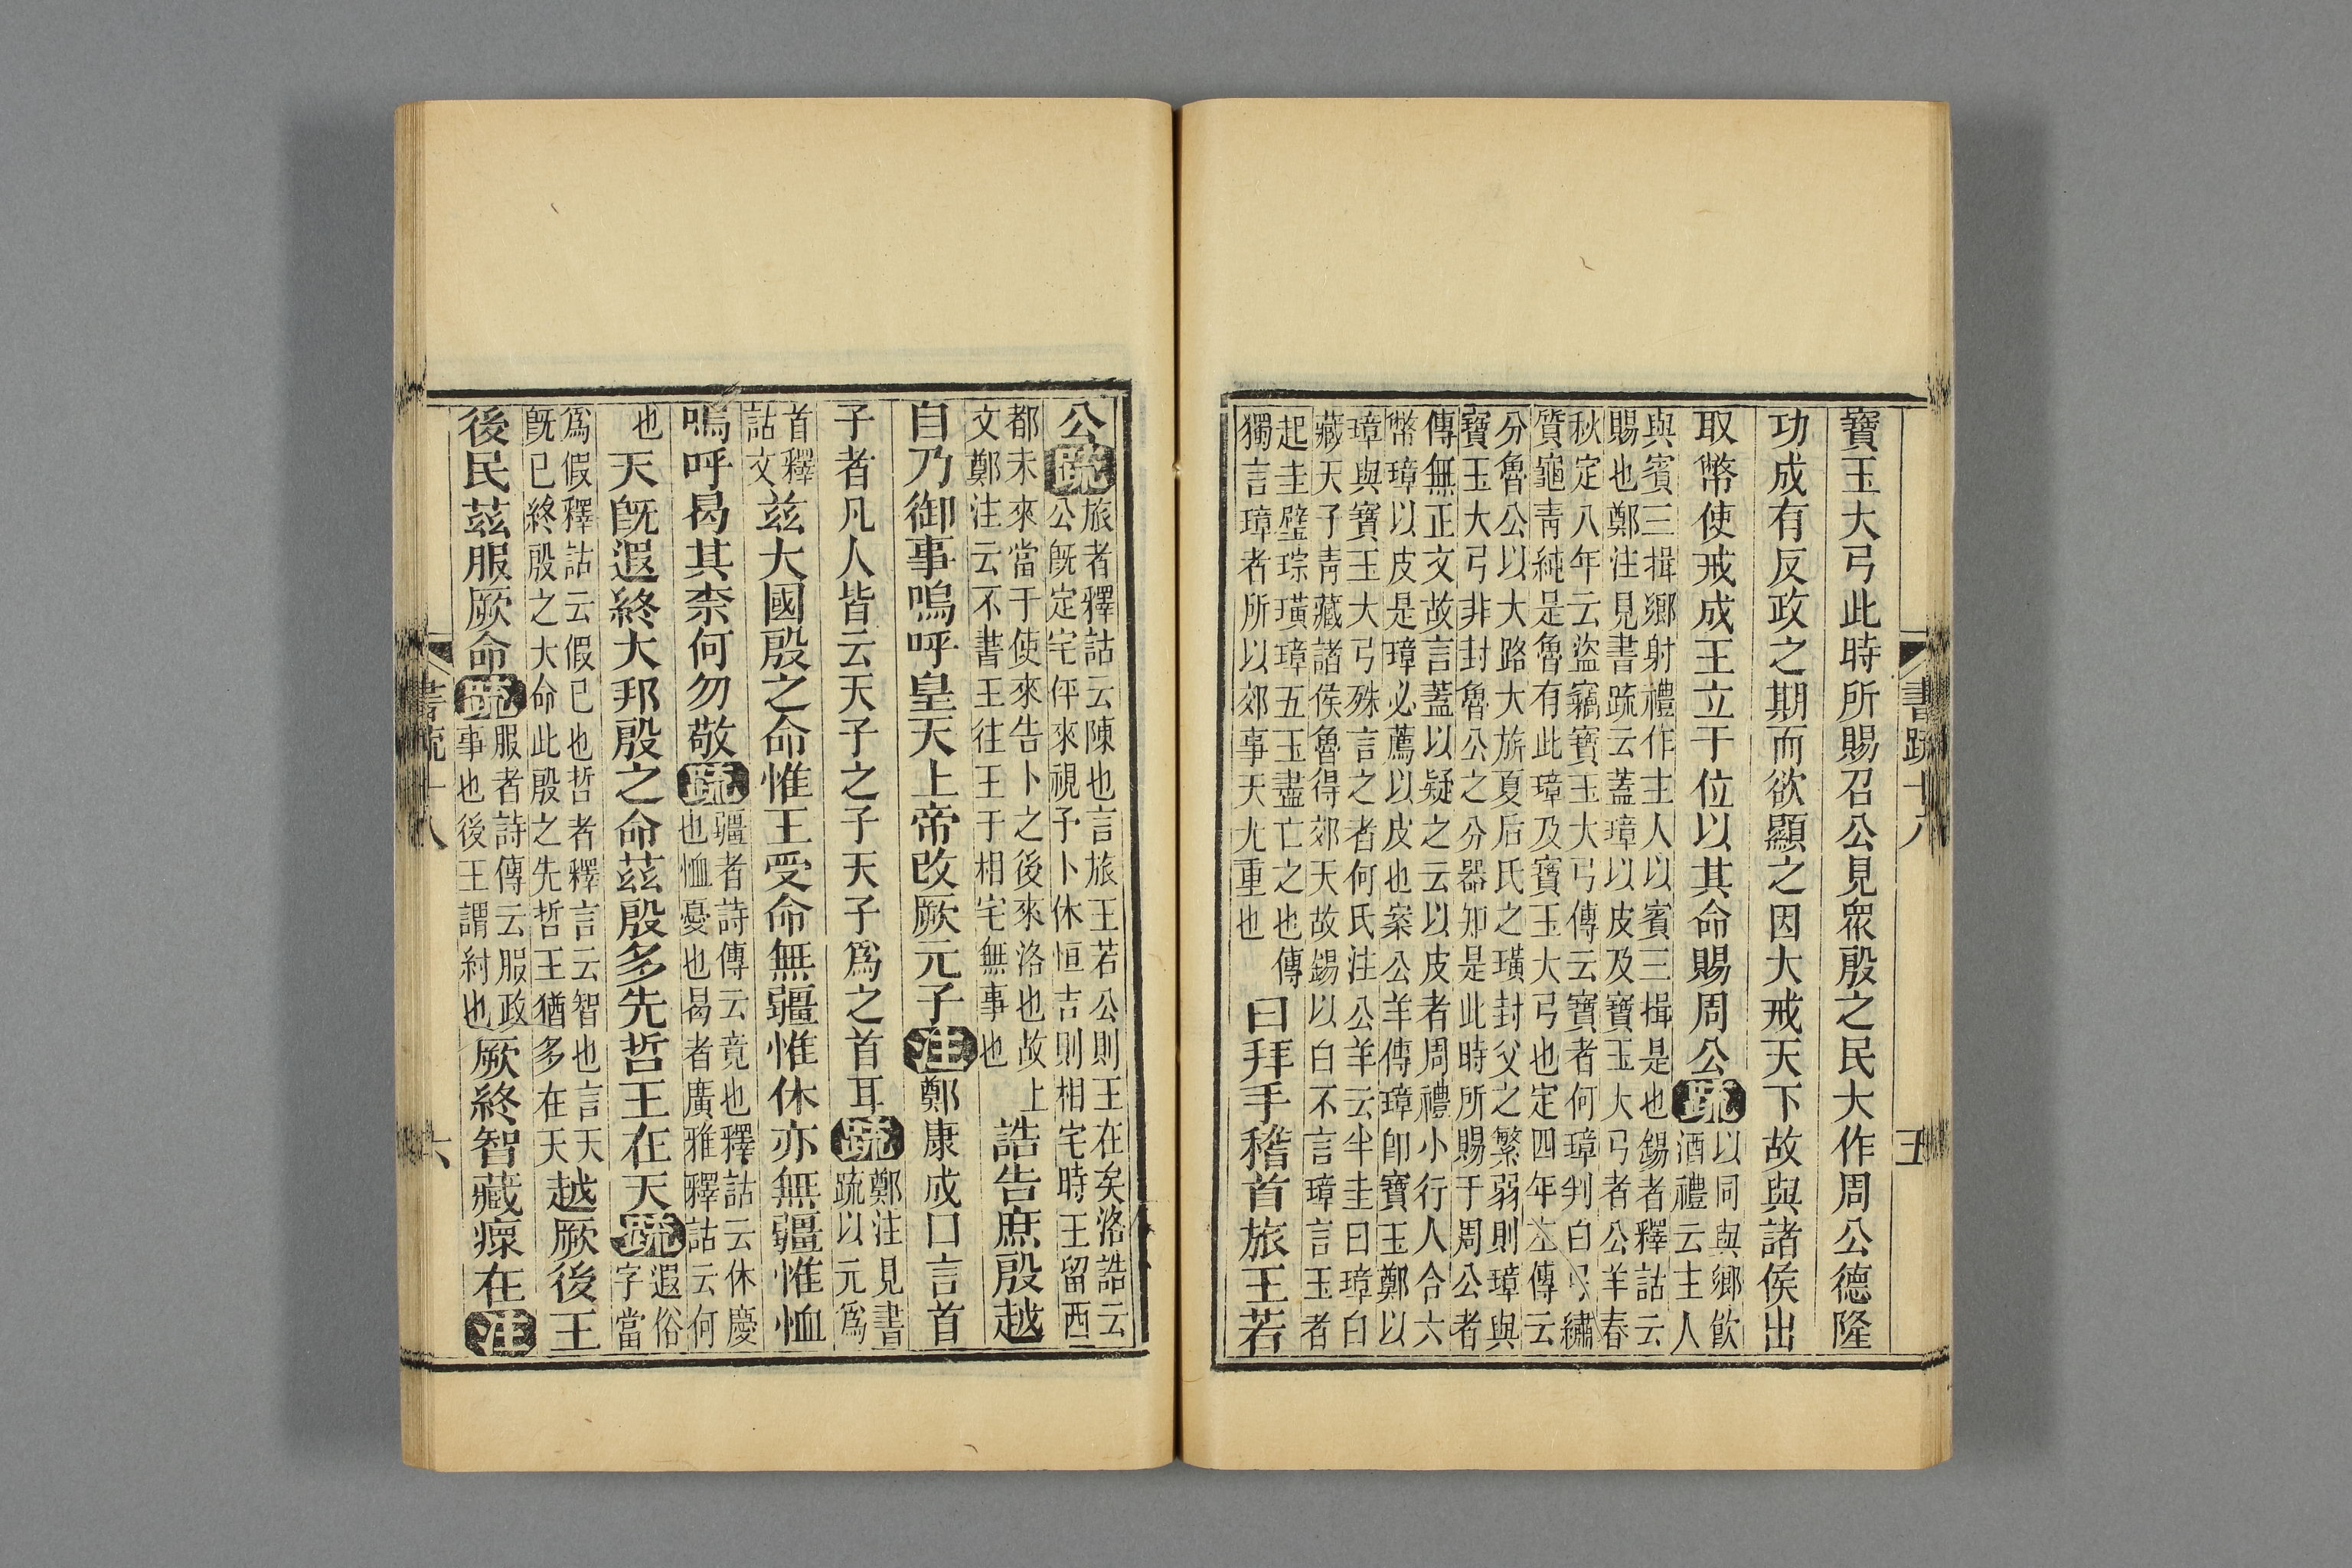 書疏十八 五
寶玉大弓此時所賜召公見眾殷之民大作周公德隆
功成有反政之期而欲顯之因大戒天下故與諸侯出
取幣使戒成王立于位以其命賜周公疏
以同與鄉飲
酒禮云主人
與賓三揖鄉射禮作主人以賓三揖是也錫者釋詁云
賜也鄭注見書疏云蓋璋以皮及寶玉大弓者公羊春
秋定八年云盜竊寶玉大弓傳云寶者何璋判白弓繡
質龜青純是魯有此璋及寶玉大弓也定四年左傳云
分魯公以大路大旂夏后氏之璜封父之繁弱則璋與
寶玉大弓非封魯公之分器知是此時所賜于周公者
傳無正文故言蓋以疑之云以皮者周禮小行人合六
幣璋以皮是璋必薦以皮也案公羊傳璋卽寶玉鄭以
璋與寶玉大弓殊言之者何氏注公羊云半圭曰璋白
藏天子青藏諸侯魯得郊天故錫以白不言璋言玉者
起圭璧琮璜璋五玉盡亡之也傳
獨言璋者所以郊事天尤重也
曰拜手稽首旅王若
公疏
旅者釋詁云陳也言旅王若公則王在矣洛誥云
公旣定宅伻來視予卜休恒吉則相宅時王留西
都未來當于使來告卜之後來洛也故上
文鄭注云不書王往王于相宅無事也
誥告庶殷越
自乃御事嗚呼皇天上帝改厥元子注鄭康成曰言首
子者凡人皆云天子之子天子爲之首耳疏
鄭注見書
疏以元爲
首釋
詁文
茲大國殷之命惟王受命無疆惟休亦無疆惟恤
嗚呼曷其柰何勿敬疏
疆者詩傳云竟也釋詁云休慶
也恤憂也曷者廣雅釋詁云何
也
天旣遐終大邦殷之命茲殷多先哲王在天疏
遐俗
字當
爲假釋詁云假已也哲者釋言云智也言天
旣已終殷之大命此殷之先哲王猶多在天
越厥後王
後民茲服厥命疏
服者詩傳云服政
事也後王謂紂也
厥終智藏瘝在注
書疏十八 六